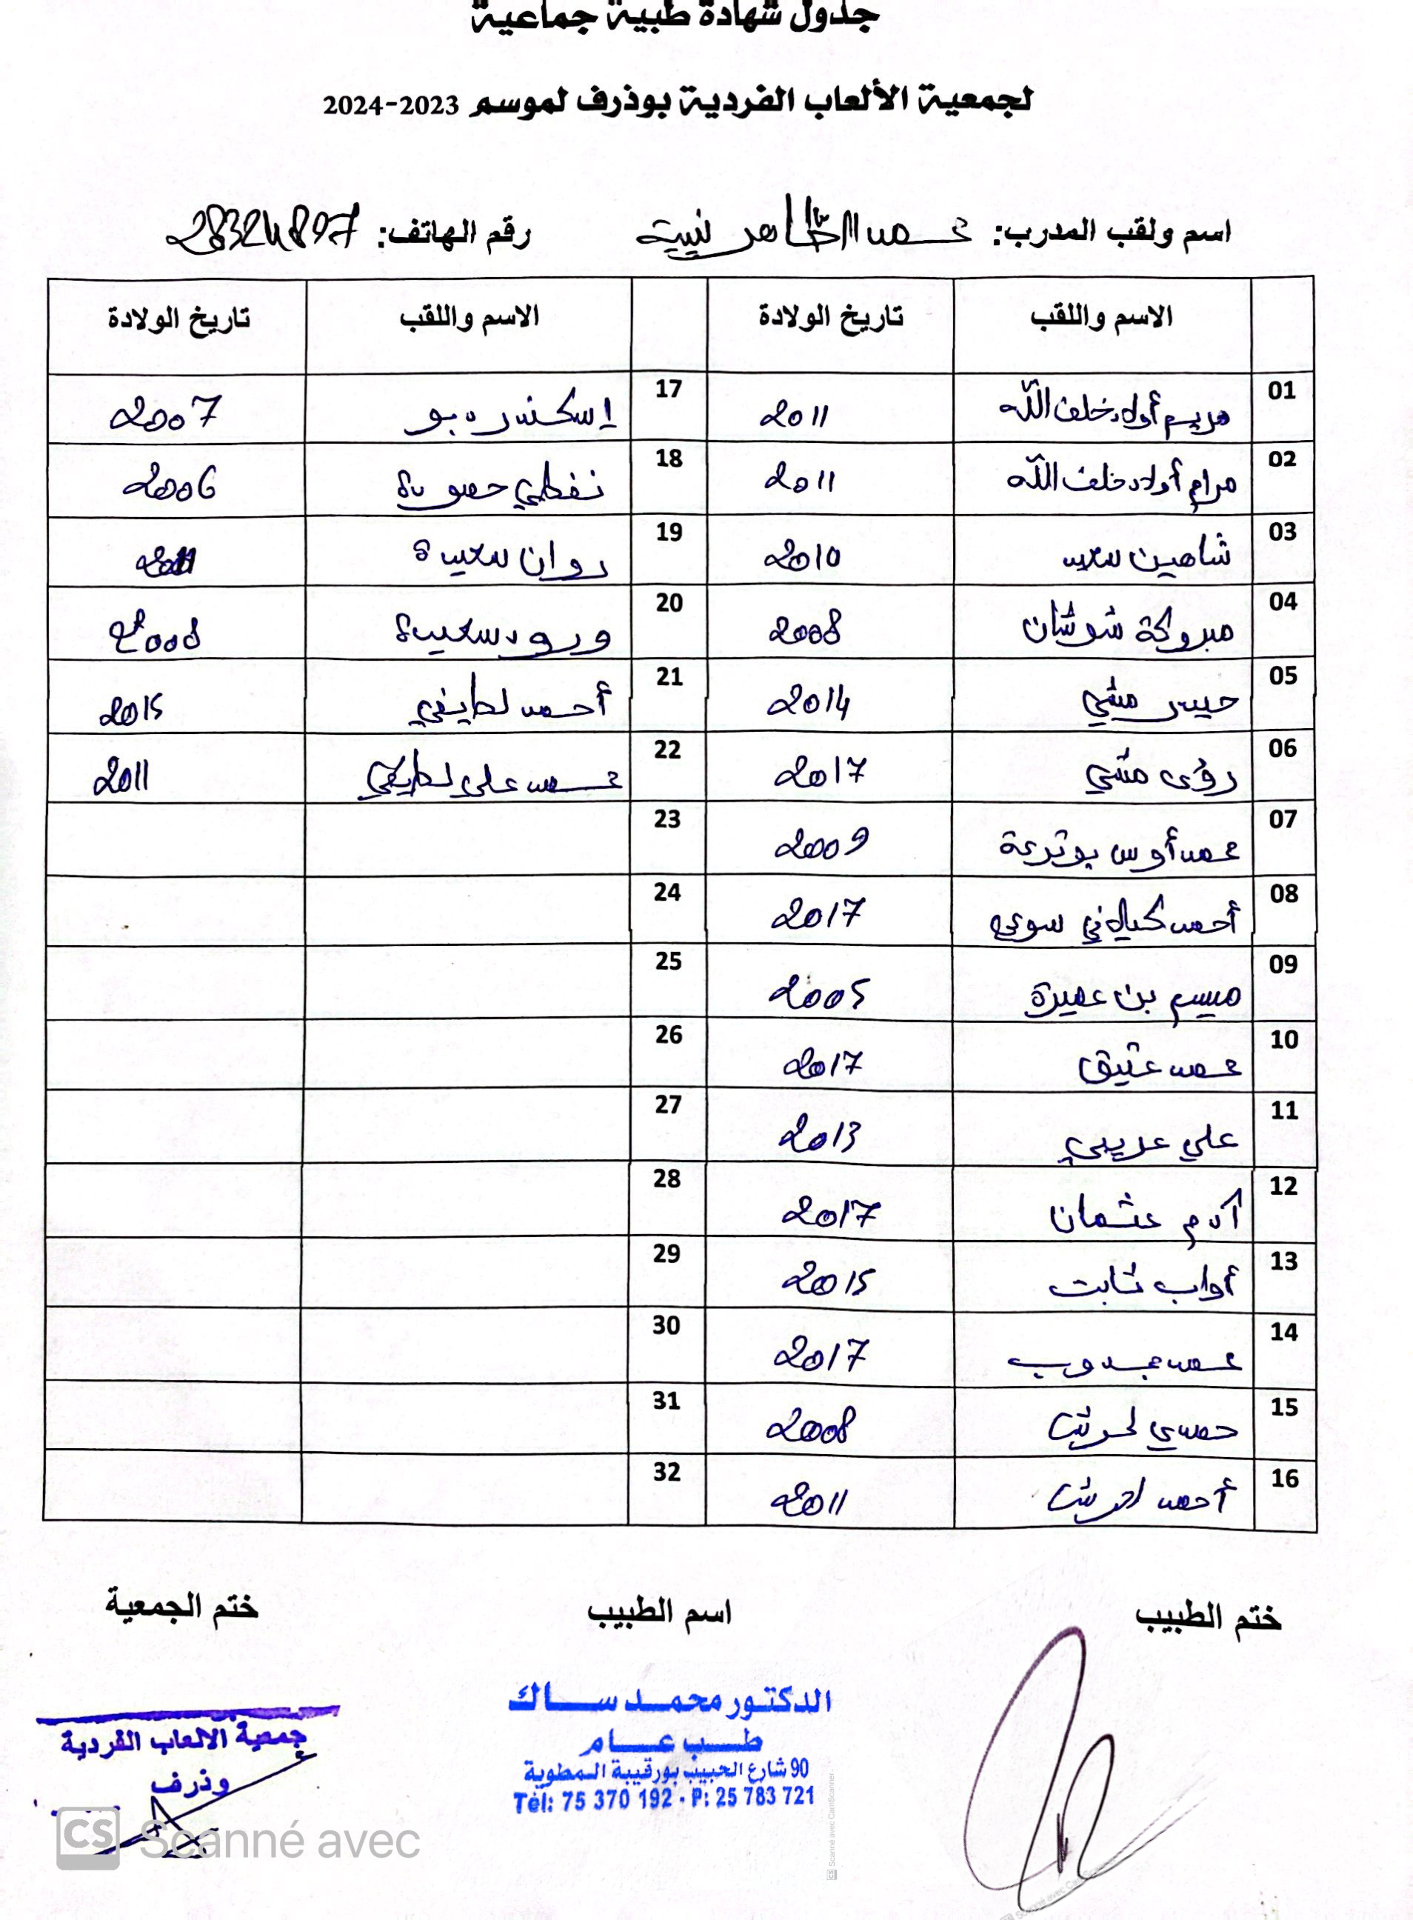 جدول شهادة طبية جماعية
لجمعية الألعاب الفردية بوذرف لموسم 2023-2024
اسم ولقب المدرب: محمد الطاهر نيية رقم الهاتف: 28324897
الاسم واللقب تاريخ الولادة الاسم واللقب تاريخ الولادة
01 مريم أولاد خلف الله 2011 17 إسكندر دبو 2007
02 مرام أولاد خلف الله 2011 18 نفطي حمودة 2006
03 شاهين سعيد 2010 19 روان سعيدة 2011
04 مبروكة شوشان 2008 20 ورود سعيدة 2008
05 مشي 2014 21 أحمد لطيفي 2015
06 رؤى مشي 2017 22 محمد علي لطيفي 2011
07 محمد أوس بوترعة 2009 23
08 أحمد 2017 24
09 ميسم بن عميرة 2005 25
10 محمد عتيق 2017 26
11 علي عريبي 2013 27
12 آدم عثمان 2017 28
13 أواب ثابت 2015 29
14 محمد مجدوب 2017 30
15 حمدي 2008 31
16 أحمد 2011 32
ختم الطبيب اسم الطبيب ختم الجمعية
الدكتور محمد ساك
طب عام
90 شارع الحبيب بورقيبة المطوية
Tél: 75 370 192 - P: 25 783 721
جمعية الالعاب الفردية
وذرف
CS Scanné avec
CS Scanné avec CamScanner
CS Scanné avec CamScanner